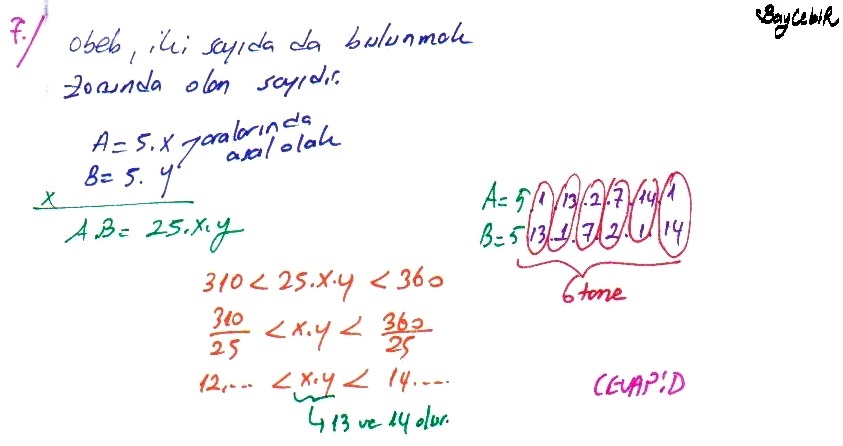 BayÇebiR
7./ obeb, iki sayıda da bulunmak
zorunda olan sayıdır.
A = 5.x → aralarında
B = 5.y asal olak
x
A.B = 25.x.y
310 < 25.x.y < 360
310/25 < x.y < 360/25
12,... < x.y < 14....
↳ 13 ve 14 olur.
A = 5 1 . 13 . 2 . 7 . 14 . 1
B = 5 13 . 1 . 7 . 2 . 1 . 14
6 tane
CEVAP: D